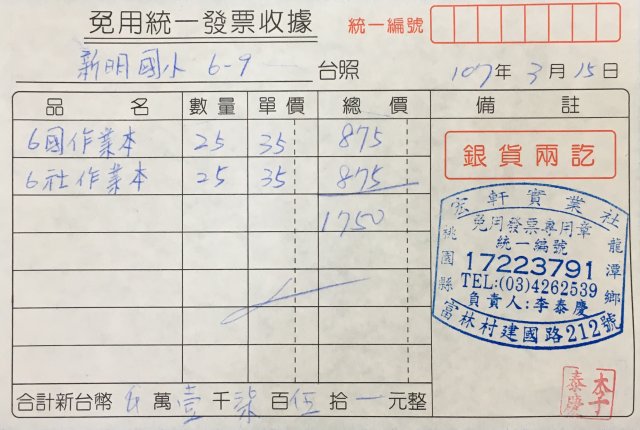 免用統一發票收據
統一編號
新明國小 6-9 台照
107年 3月 15日
品名 數量 單價 總價 備註
6國作業本 25 35 875
6社作業本 25 35 875
1750
銀貨兩訖
宏軒實業社
免用發票專用章
統一編號
17223791
TEL:(03)4262539
負責人:李泰慶
桃園縣
龍潭鄉
富林村建國路212號
合計新台幣 萬壹千柒百伍拾 元整